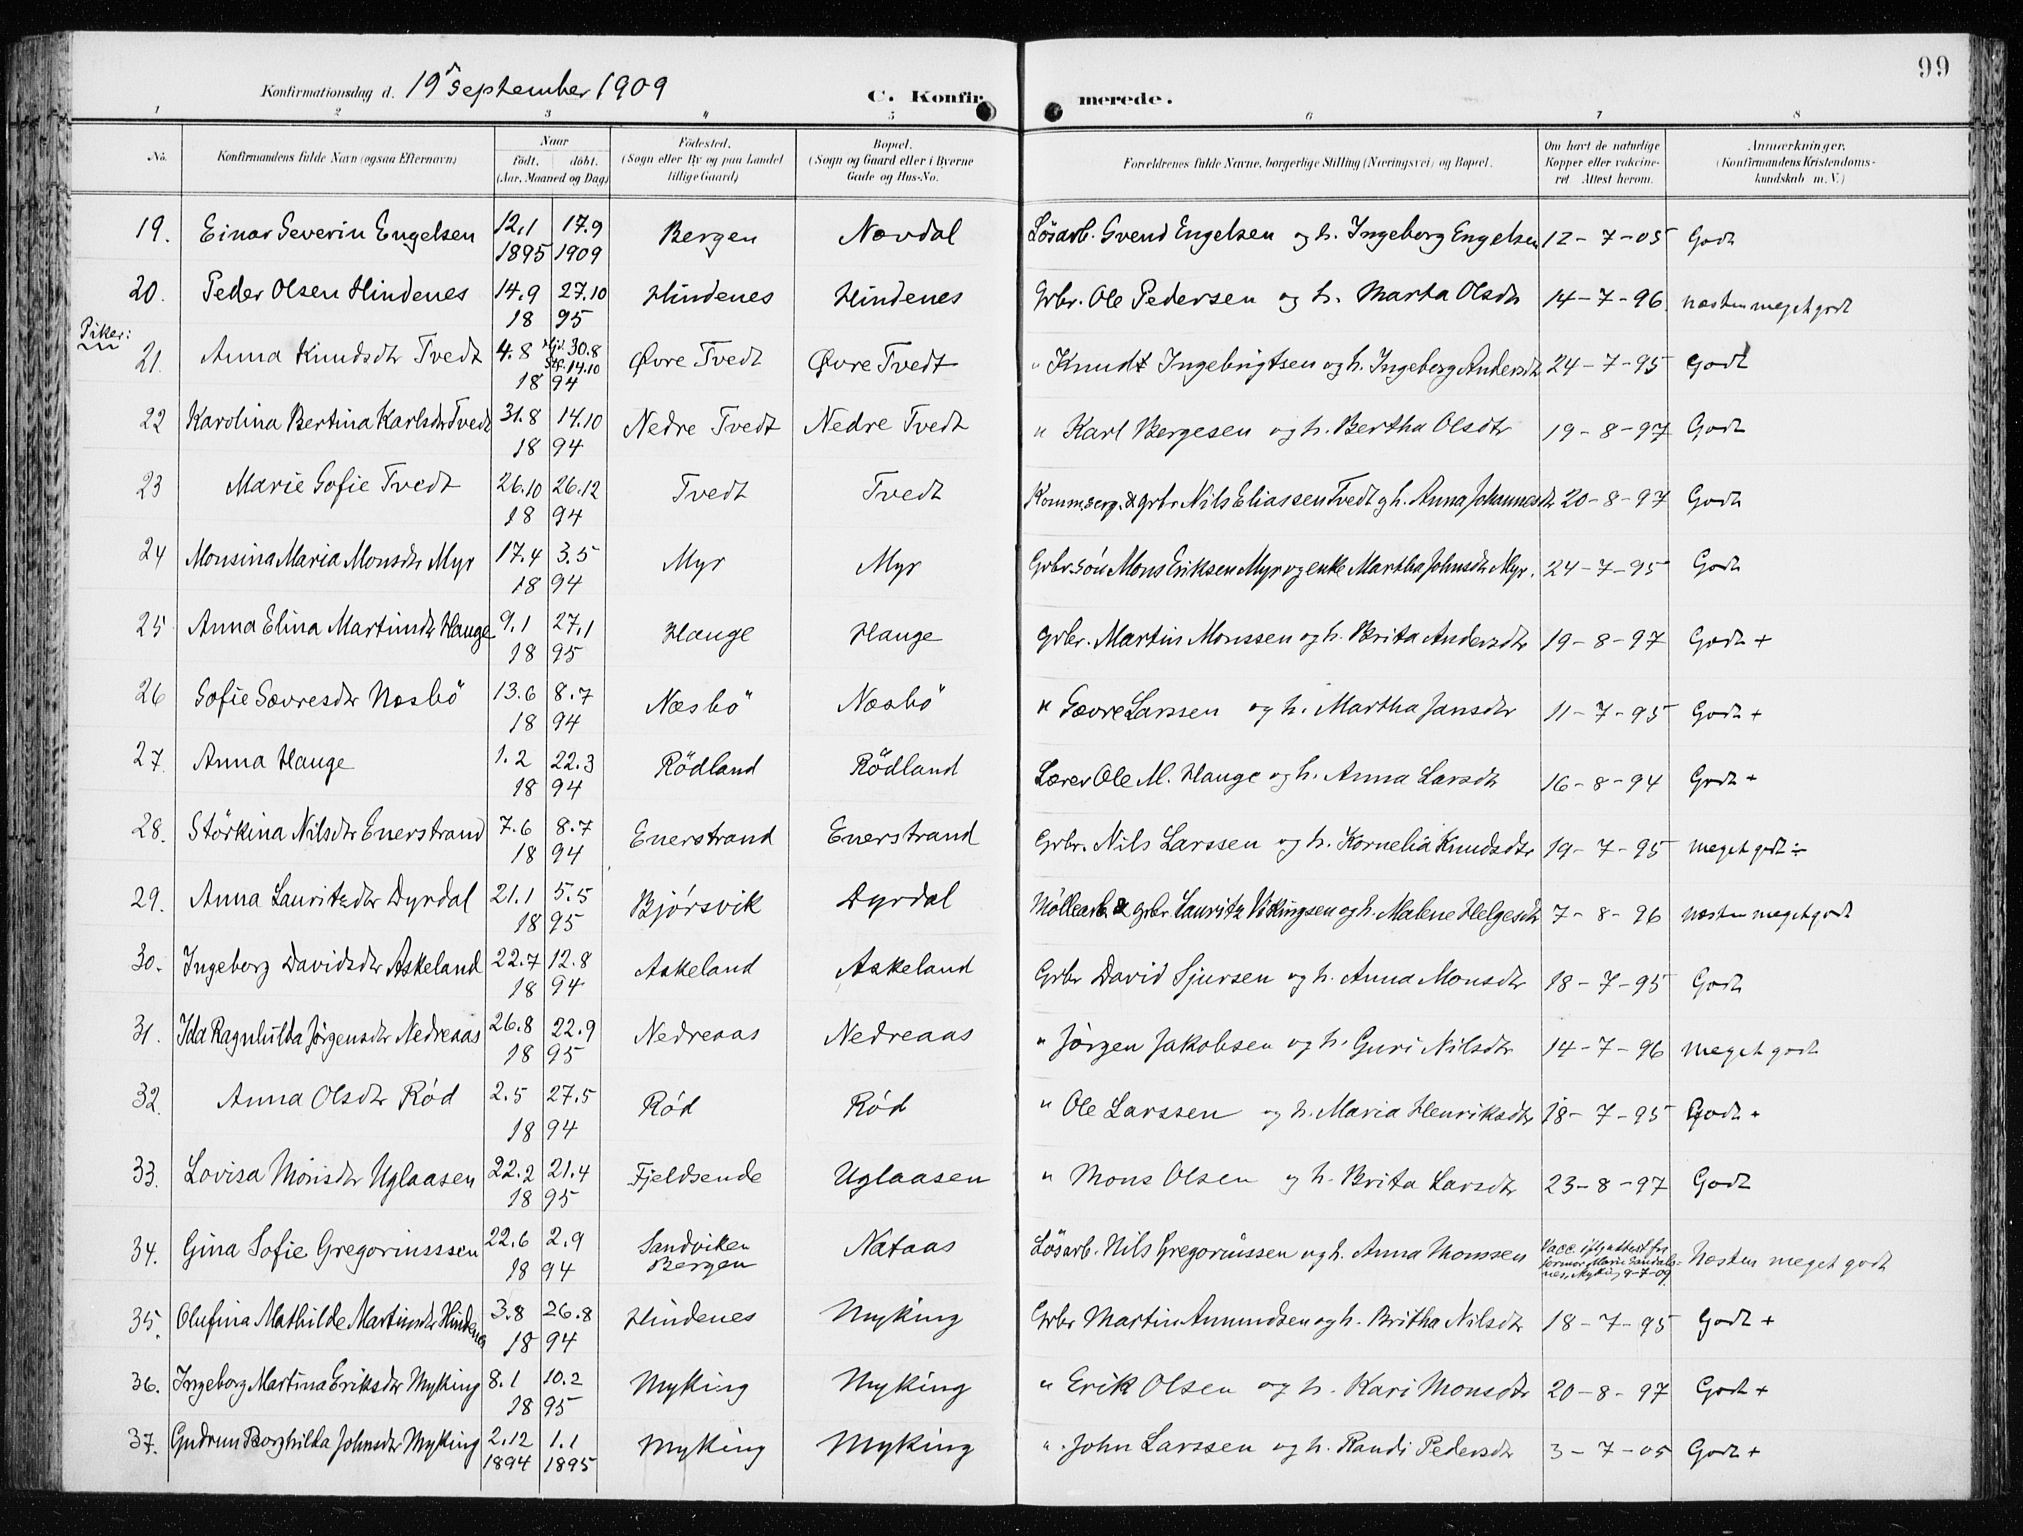 99
Konfirmationsdag d. 19 september 1909
C. Konfirmerede.
1 2 3 4 5 6 7 8
No. Konfirmandens fulde Navn (ogsaa Efternavn) Naar født. døbt. (Aar, Maaned og Dag) Födested. (Sogn eller By og paa Landet tillige Gaard) Bopæl. (Sogn og Gaard eller i Byerne Gade og Hus-No. Forældrenes fulde Navne, borgerlige Stilling (Næringsvei) og Bopæl. Om havt de naturlige Kopper eller vakcineret Attest herom. Anmærkninger. (Konfirmandens Kristendomskundskab m. V.)
19. Einar Severin Engelsen 12.1 1895 17.9 1909 Bergen Novdal Lösarb. Svend Engelsen og h. Ingeborg Engelsen 12-7-05 Godt
20. Peder Olsen Hindenes 14.9 27.10 18 95 Hindenes Hindenes Grbr. Ole Pedersen og h. Marta Olsdtr 14-7-96 næsten meget godt
Piker:
21. Anna Knudsdtr Tvedt 4.8 30.8 14.10 18 94 Øvre Tvedt Øvre Tvedt " Knudt Ingebrigtsen og h. Ingeborg Andersdtr 24-7-95 Godt
22 Karolina Bertina Karlsdtr Tvedt 31.8 14.10 18 94 Nedre Tvedt Nedre Tvedt " Karl Bergesen og h. Bertha Olsdtr 19-8-97 Godt
23 Marie Sofie Tvedt 26.10 26.12 18 94 Tvedt Tvedt & grbr Nils Eliassen Tvedt og h. Anna Johannesdtr 20-8-97 Godt
24 Monsina Maria Monsdtr Myr 17.4 3.5 18 94 Myr Myr Grbr sön Mons Eriksen Myr og enke Martha Johnsdtr Myr. 24-7-95 Godt
25 Anna Elina Martinsdtr Hauge 9.1 27.1 18 95 Hauge Hauge grbr. Martin Monssen og h. Brita Andersdtr 19-8-97 Godt +
26 Sofie Sævresdtr Næsbö 13.6 8.7 18 94 Næsbö Næsbö " Sævre Larssen og h. Martha Jansdtr 11-7-95 Godt +
27. Anna Hauge 1.2 22.3 18 94 Rödland Rödland Lærer Ole M. Hauge og h. Anna Larsdtr 16-8-94 Godt +
28. Störkina Nilsdtr Enerstrand 7.6 8.7 18 94 Enerstrand Enerstrand Grbr. Nils Larssen og h. Kornelia Knudsdtr 19-7-95 meget godt ÷
29. Anna Lauritzdtr Dyrdal 21.1 5.5 18 95 Bjørsvik Dyrdal Møllearb. & grbr Lauritz Vikingsen og h. Malene Helgesdtr 7-8-96 næsten meget godt
30. Ingeborg Davidsdtr Askeland 22.7 12.8 18 94 Askeland Askeland Grbr David Sjursen og h. Anna Monsdtr 18-7-95 Godt
31. Ida Ragnhilda Jørgensdtr Nedreaas 26.8 22.9 18 95 Nedreaas Nedreaas " Jørgen Jakobsen og h. Guri Nilsdtr 14-7-96 meget godt
32. Anna Olsdtr Rød 2.5 27.5 18 94 Rød Rød " Ole Larssen og h. Maria Henriksdtr 18-7-95 Godt +
33. Lovisa Monsdtr Uglaasen 22.2 21.4 18 95 Fjeldsende Uglaasen " Mons Olsen og h. Brita Larsdtr 23-8-97 Godt
34. Gina Sofie Gregoriusssen 22.6 2.9 18 94 Sandviken Bergen Nataas Lösarb. Nils Gregoriussen og h. Anna Monssen Vacc. attest fra Marie 9-7-09 Næsten meget godt
35. Olufina Mathilde Martinsdtr Hindenes 3.8 26.8 18 94 Hindenes Myking Grbr Martin Amundsen og h. Britha Nilsdtr 18-7-95 Godt +
36. Ingeborg Martina Eriksdtr Myking 8.1 10.2 18 95 Myking Myking " Erik Olsen og h. Kari Monsdtr 20-8-97 Godt +
37. Gudrun Borghilda Johnsdtr Myking 2.12 1894 1.1 1895 Myking Myking " John Larssen og h. Randi Pedersdtr 3-7-05 Godt +